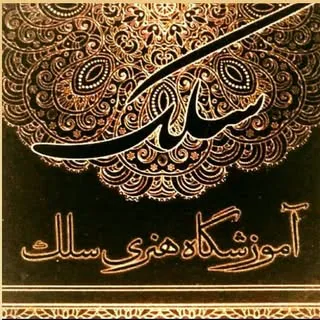 سلک
آموزشگاه هنری سلک